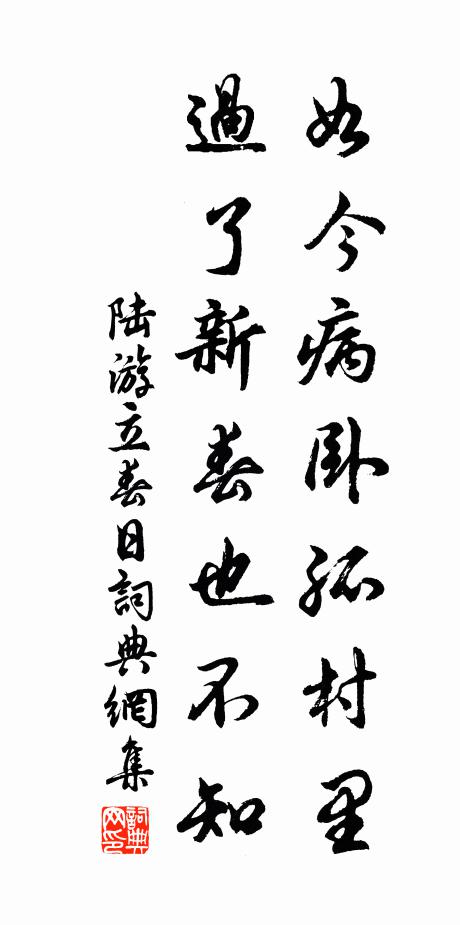 如今病卧孤村里
過了新春也不知
陆游立春日詞典網集
詞典网印